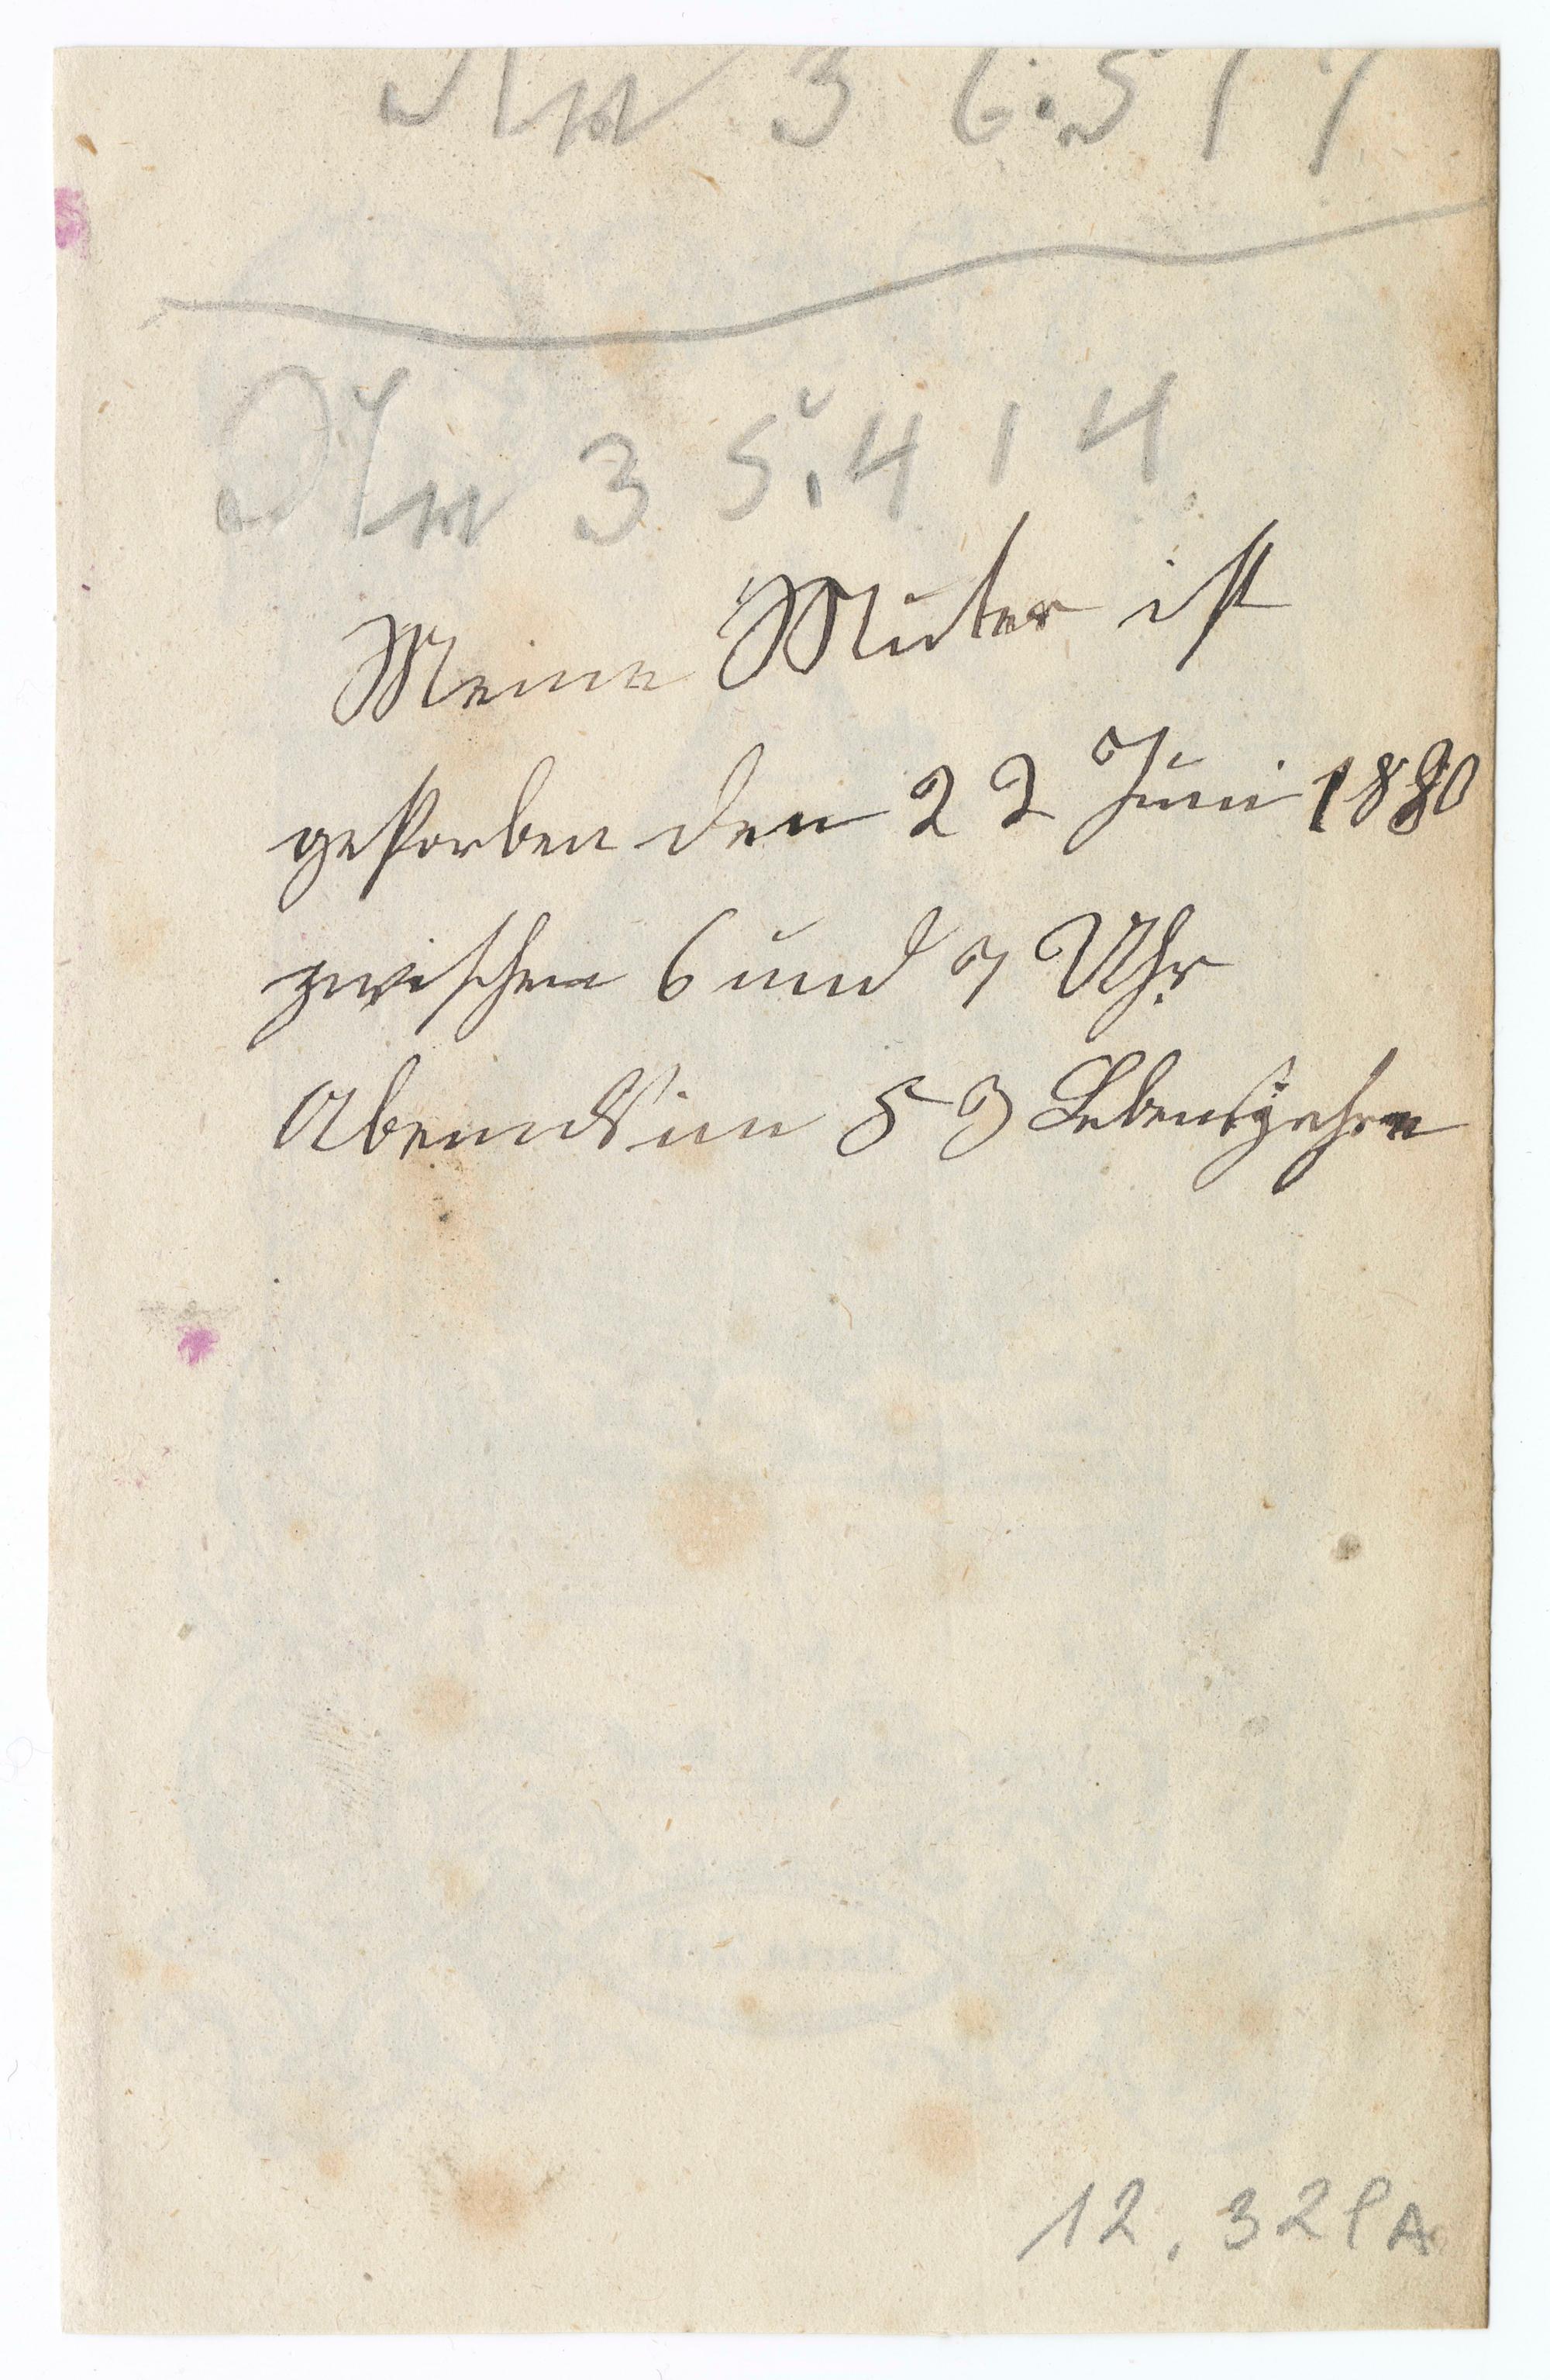 Nr 3 6.517
Nr 35.414
Meine Muter ist
gestorben den 22 Juni 1880
zwischen 6 und 7 Uhr
Abends im 53 Lebensjahre
12.329A